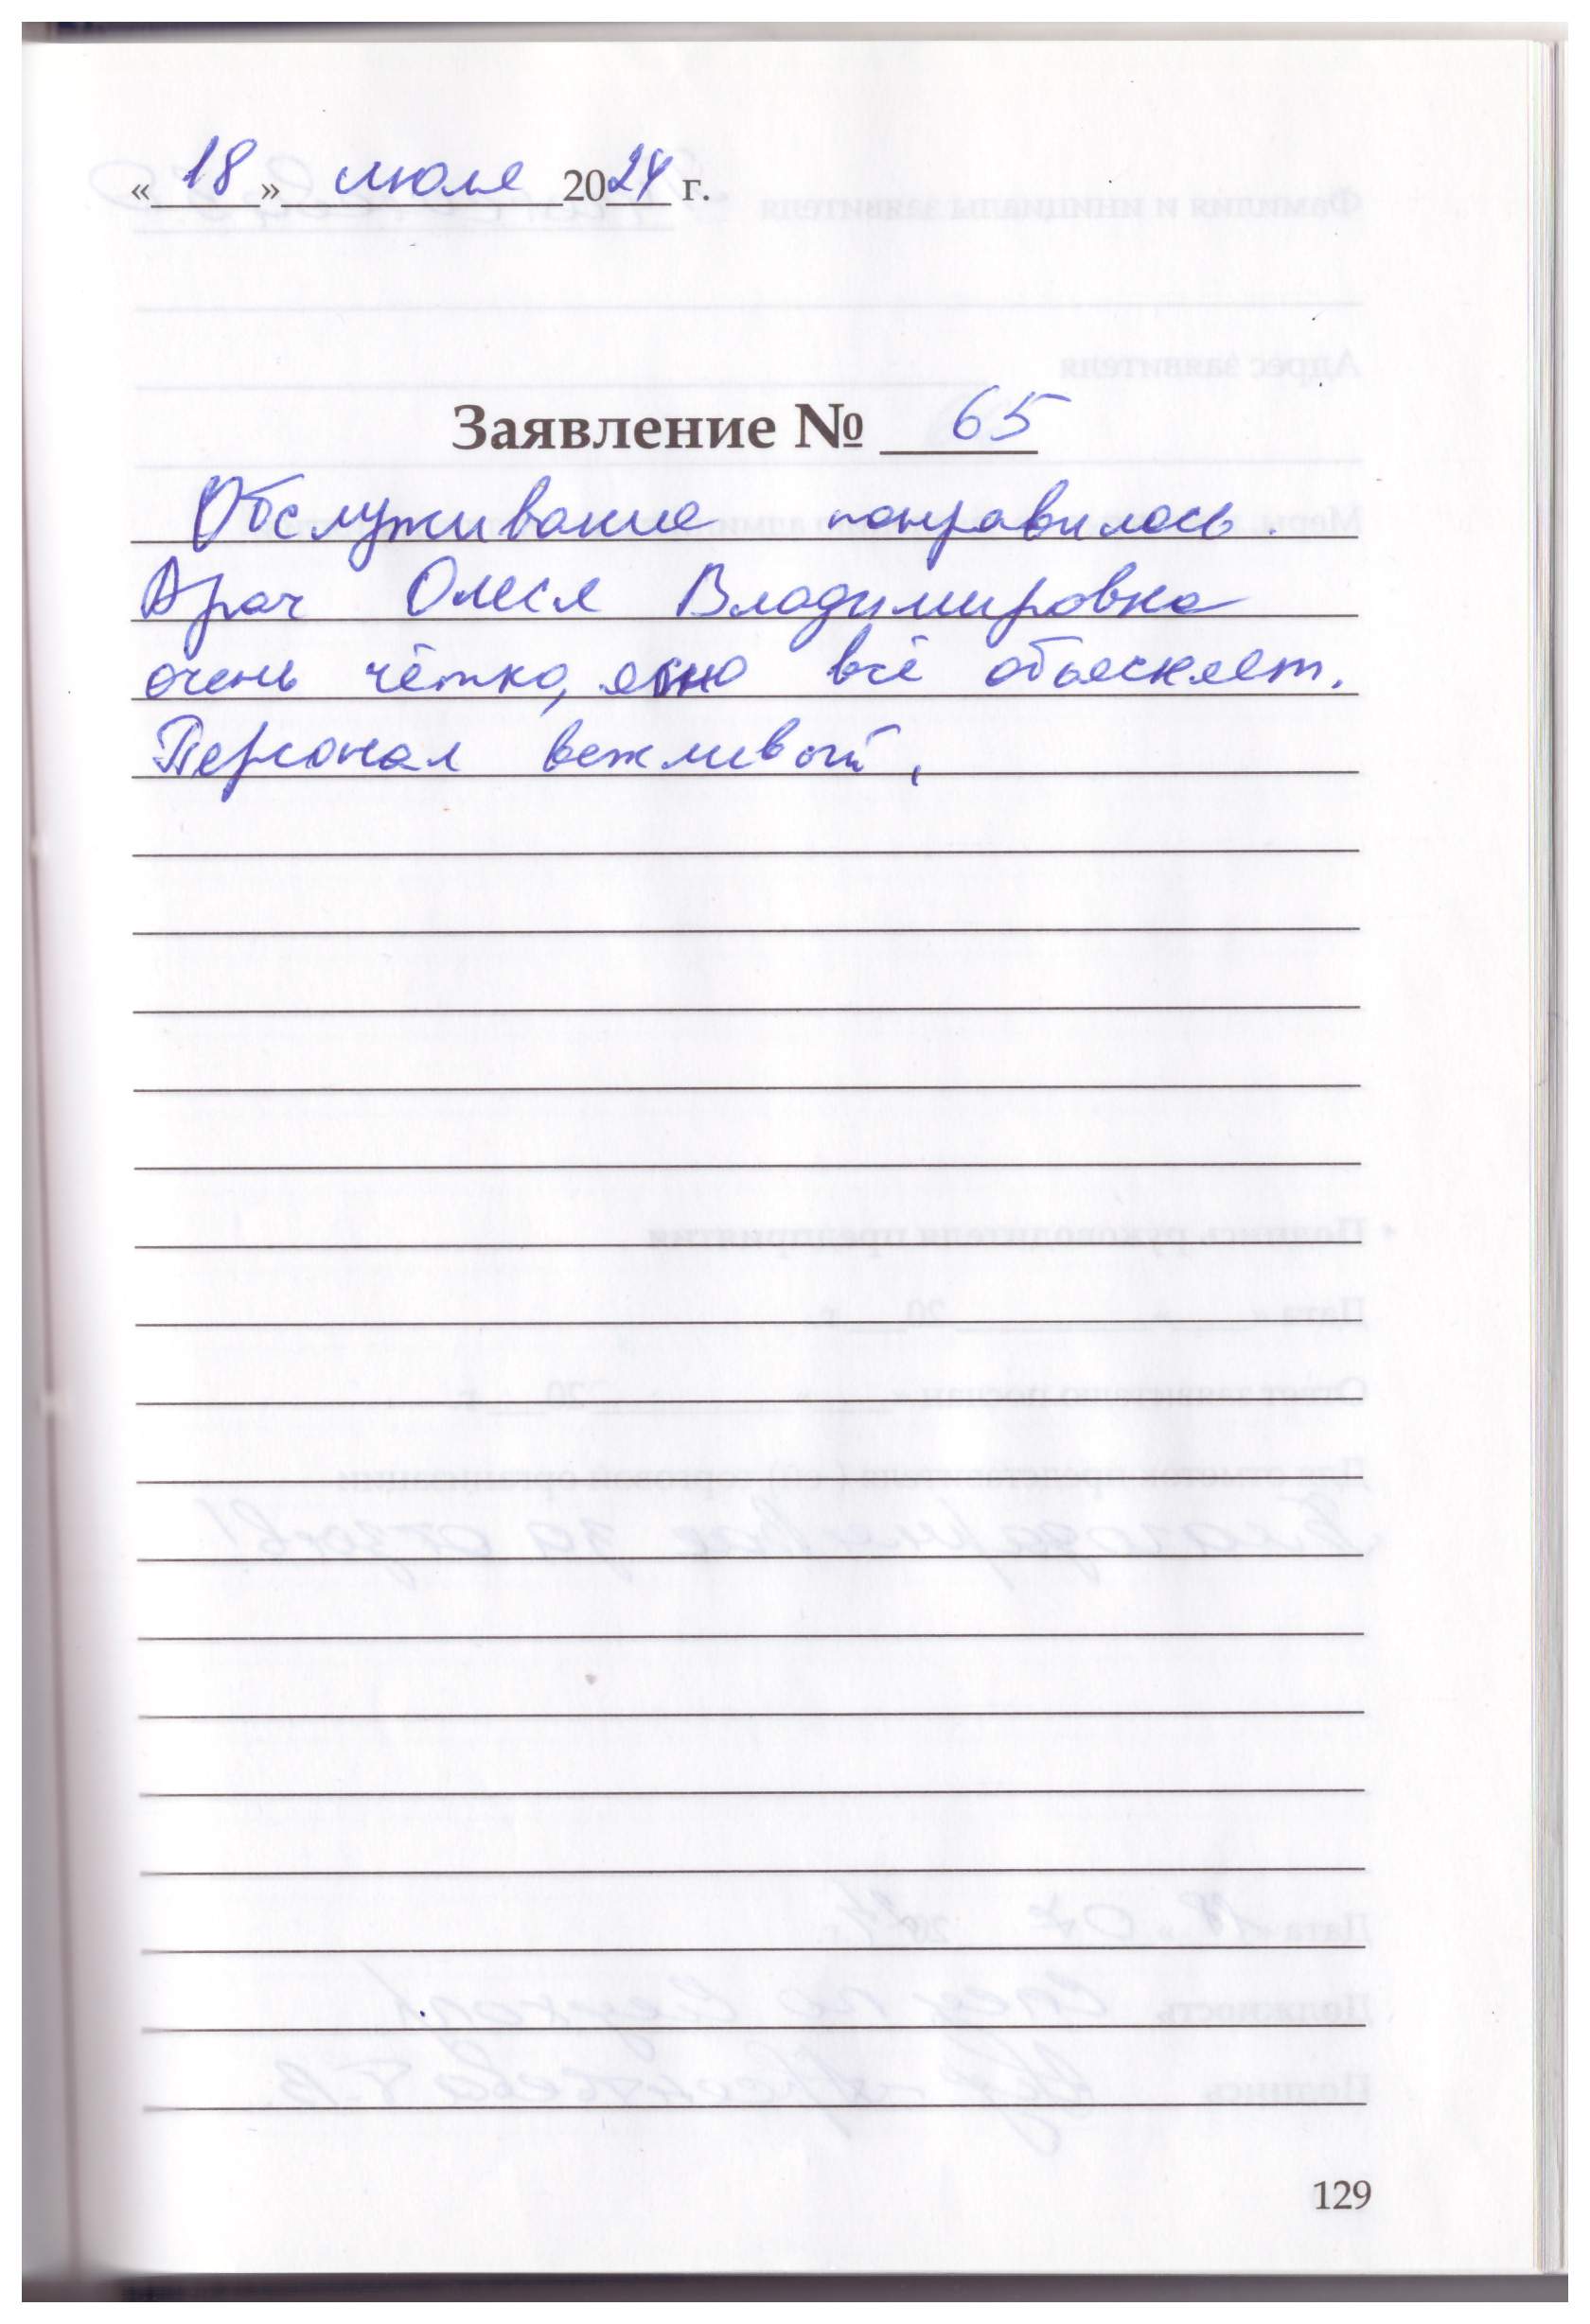 «18» июля 2024 г.
Заявление № 65
Обслуживание понравилось.
Врач Олеся Владимировна
очень чётко, ясно всё объясняет.
Персонал вежливый.
129